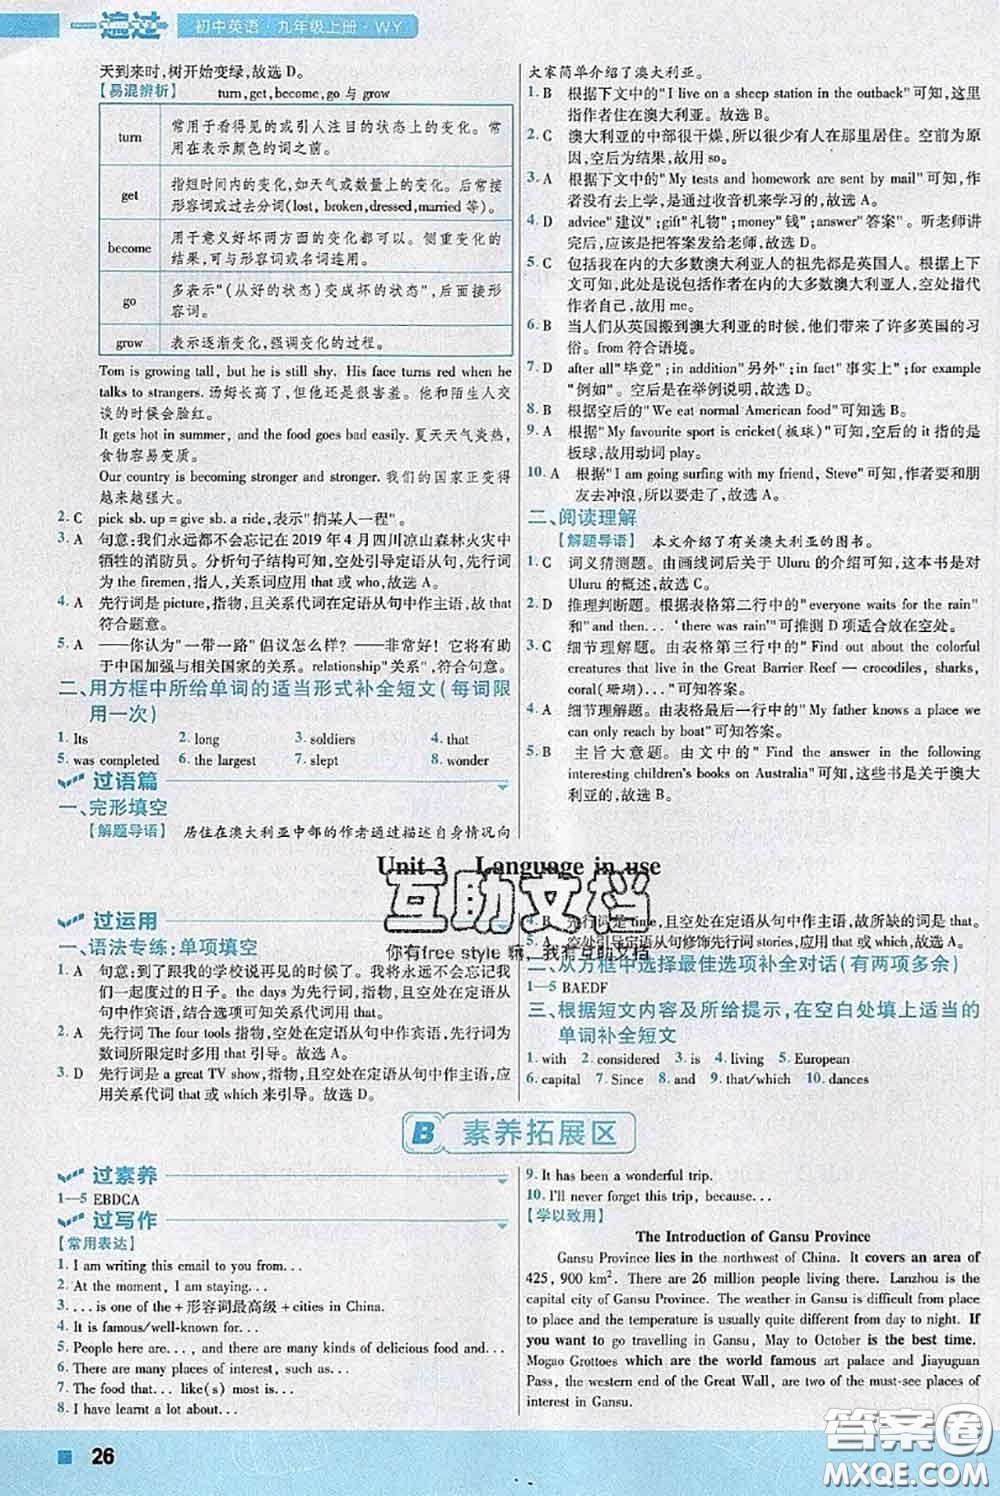 一遍过 初中英语·九年级上册·WY
天到来时,树开始变绿,故选 D。
【易混辨析】 turn,get,become,go 与 grow
turn 常用于看得见的或引人注目的状态上的变化。常
用在表示颜色的词之前。
get 指短时间内的变化,如天气或数量上的变化。后常接
形容词或过去分词(lost, broken,dressed,married 等)。
become 用于意义好坏两方面的变化都可以。侧重变化的
结果,可与形容词或名词连用。
go 多表示"(从好的状态)变成坏的状态",后面接形
容词。
grow 表示逐渐变化,强调变化的过程。
Tom is growing tall, but he is still shy. His face turns red when he
talks to strangers. 汤姆长高了,但他还是很害羞。他和陌生人交
谈的时候会脸红。
It gets hot in summer, and the food goes bad easily. 夏天天气炎热,
食物容易变质。
Our country is becoming stronger and stronger. 我们的国家正变得
越来越强大。
2. C pick sb. up = give sb. a ride,表示"捎某人一程"。
3. A 句意:我们永远都不会忘记在 2019 年 4 月四川凉山森林火灾中
牺牲的消防员。分析句子结构可知,空处引导定语从句,先行词
为 the firemen,指人,关系词应用 that 或 who,故选 A。
4. A 先行词是 picture,指物,且关系代词在定语从句中作主语,故 that
符合题意。
5. A ——你认为"一带一路"倡议怎么样? ——非常好! 它将有助
于中国加强与相关国家的关系。relationship"关系",符合句意。
二、用方框中所给单词的适当形式补全短文(每词限
用一次)
1. Its 2. long 3. soldiers 4. that
5. was completed 6. the largest 7. slept 8. wonder
过语篇
一、完形填空
【解题导语】 居住在澳大利亚中部的作者通过描述自身情况向
大家简单介绍了澳大利亚。
1. B 根据下文中的"I live on a sheep station in the outback"可知,这里
指作者住在澳大利亚。故选 B。
2. C 澳大利亚的中部很干燥,所以很少有人在那里居住。空前为原
因,空后为结果,故用 so。
3. A 根据下文中的"My tests and homework are sent by mail"可知,作
者没有去上学,是通过收音机来学习的,故选 A。
4. D advice"建议";gift"礼物";money"钱";answer"答案"。听老师讲
完后,应该是把答案发给老师,故选 D。
5. C 包括我在内的大多数澳大利亚人的祖先都是英国人。根据上下
文可知,此处是说包括作者在内的大多数澳大利亚人,空处指代
作者自己,故用 me。
6. B 当人们从英国搬到澳大利亚的时候,他们带来了许多英国的习
俗。from 符合语境。
7. D after all"毕竟";in addition"另外";in fact"事实上";for example
"例如"。空后是在举例说明,故选 D。
8. B 根据空后的"We eat normal American food"可知选 B。
9. A 根据"My favourite sport is cricket(板球)"可知,空后的 it 指的是
板球,故用动词 play。
10. A 根据"I am going surfing with my friend, Steve"可知,作者要和朋
友去冲浪,所以要走了,故选 A。
二、阅读理解
【解题导语】 本文介绍了有关澳大利亚的图书。
1. C 词义猜测题。由画线词后关于 Uluru 的介绍可知,这本书是对
Uluru 的概述,故选 C。
2. D 推理判断题。根据表格第二行中的"everyone waits for the rain"
和"and then... 'there was rain'"可推测 D 项适合放在空处。
3. C 细节理解题。由表格第三行中的"Learn about the colorful
creatures that live in the Great Barrier Reef — crocodiles, sharks,
coral(珊瑚)..."可知选 C。
4. A 细节理解题。由表格最后一行中的"My father knows a place we
can only reach by boat"可知选 A。
5. B 主旨大意题。由文中的"Find the answer in the following
interesting children's books on Australia"可知,这些书是关于澳大
利亚的,故选 B。
Unit 3 Language in use
互助文档
你有free style 嘛，我有互助文档
过运用
一、语法专练:单项填空
1. A 句意:到了跟我的学校说再见的时候了。我将永远不会忘记我
们一起度过的日子。the days 为先行词,指物,空处在定语从句
中作宾语,结合选项可知关系代词用 that。
2. A 先行词 The four tools 指物,空处在定语从句中作宾语,先行词为
数词所限定时多用 that 引导。故选 A。
3. D 先行词是 a great TV show,指物,且空处在定语从句中作主语,应
用关系代词 that 或 which 来引导。故选 D。
4. B 先行词是 time,且空处在定语从句中作主语,故所缺的词是 that。
5. A 空处引导定语从句修饰先行词 stories,应用 that 或 which,故选 A。
二、从方框中选择最佳选项补全对话(有两项多余)
1—5 BAEDF
三、根据短文内容及所给提示,在空白处填上适当的
单词补全短文
1. with 2. considered 3. is 4. living 5. European
6. capital 7. Since 8. and 9. that/which 10. dances
B 素养拓展区
过素养
1—5 EBDCA
过写作
【常用表达】
1. I am writing this email to you from...
2. At the moment, I am staying...
3. ...is one of the+形容词最高级+cities in China.
4. It is famous/well-known for...
5. People here are..., and there are many kinds of delicious food...
6. There are many places of interest, such as...
7. The food that... like(s) most is...
8. I have learnt a lot about...
9. It has been a wonderful trip.
10. I'll never forget this trip, because...
【学以致用】
The Introduction of Gansu Province
Gansu Province lies in the northwest of China. It covers an area of
425, 900 km². There are 26 million people living there. Lanzhou is the
capital city of Gansu Province. The weather in Gansu is difficult from place
to place and the temperature is usually quite different from day to night. If
you want to go travelling in Gansu, May to October is the best time.
Mogao Grottoes which are the world famous art palace and Jiayuguan
Pass, the western end of the Great Wall, are two of the must-see places of
interest in Gansu.
26
答案圈
MXQE.COM